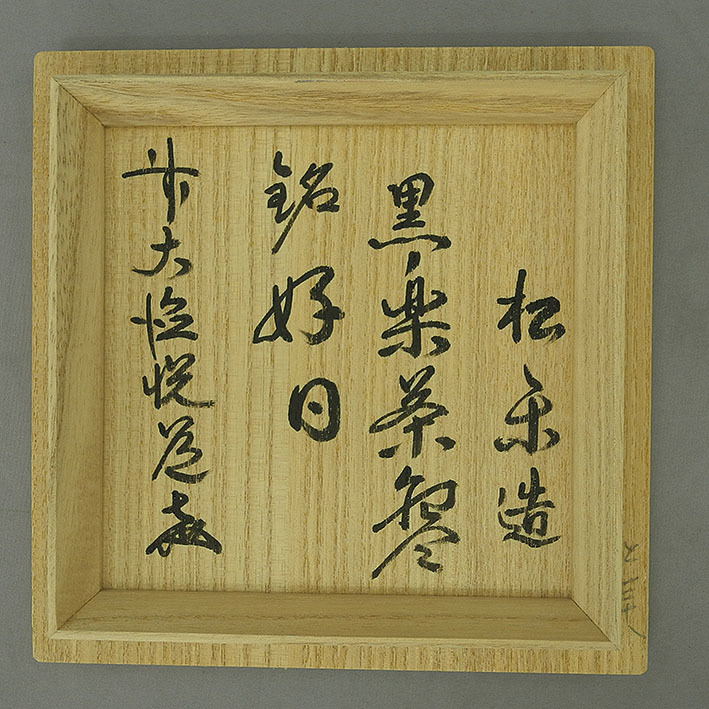 松楽造
黒楽茶盌
銘好日
前大徳悦道